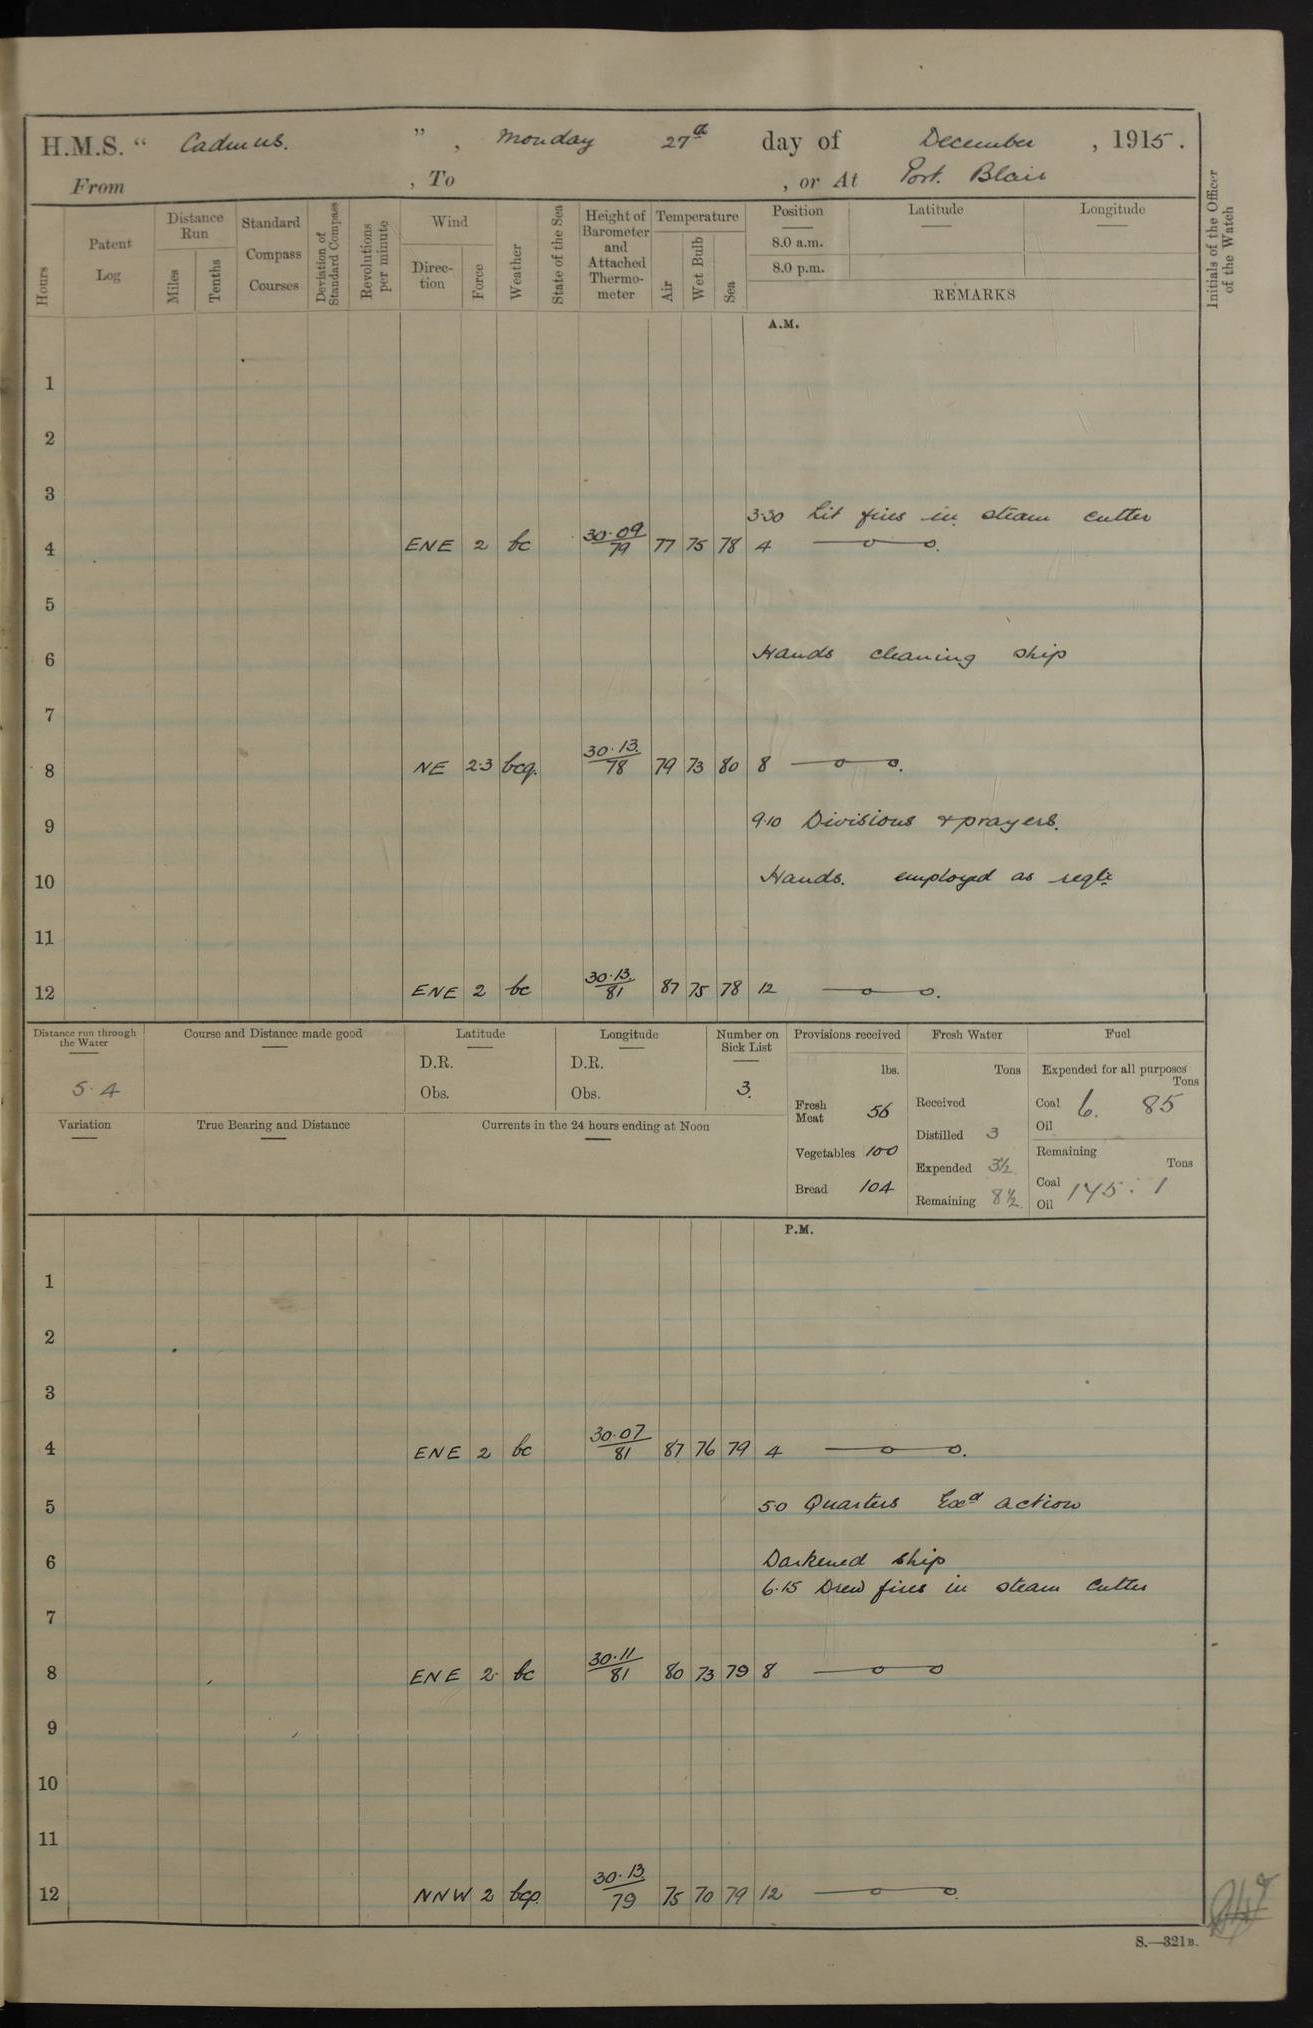 H.M.S. “ Cadmus. ” , Monday 27th day of December , 1915.
From , To , or At Port Blair
Hours
Patent Log
Distance Run
Miles
Tenths
Standard Compass Courses
Deviation of Standard Compass
Revolutions per minute
Wind
Direc- tion
Force
Weather
State of the Sea
Height of Barometer and Attached Thermo- meter
Temperature
Air
Wet Bulb
Sea
Position
8.0 a.m.
8.0 p.m.
Latitude
Longitude
REMARKS
Initials of the Officer of the Watch
A.M.
1
2
3
3.30 Lit fires in steam cutter
4 ENE 2 bc 30.09 / 79 77 75 78 4
5
6 Hands cleaning ship
7
8 NE 2.3 bcq. 30.13. / 78 79 73 80 8
9 9.10 Divisions & prayers.
10 Hands. employed as
11
12 ENE 2 bc 30.13. / 81 87 75 78 12
Distance run through the Water
5.4
Course and Distance made good
Latitude
D.R.
Obs.
Longitude
D.R.
Obs.
Number on Sick List
3.
Provisions received
lbs.
Fresh Meat 56
Vegetables 100
Bread 104
Fresh Water
Tons
Received
Distilled 3
Expended 3½
Remaining 8½
Fuel
Expended for all purposes
Tons
Coal 6. 85
Oil
Remaining
Tons
Coal 145.1
Oil
Variation
True Bearing and Distance
Currents in the 24 hours ending at Noon
P.M.
1
2
3
4 ENE 2 bc 30.07 / 81 87 76 79 4
5 5.0 Quarters Exd action
6 Darkened ship
6.15 Drew fires in steam cutter
7
8 ENE 2. bc 30.11 / 81 80 73 79 8
9
10
11
12 NNW 2 bcp. 30.13 / 79 75 70 79 12
S.—321B.